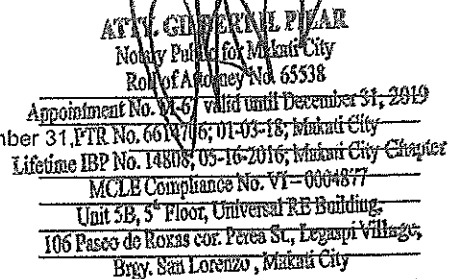 ATTY.
Notary Public for Makati City
Roll of Attorney No. 65538
Appointment No. M-67 valid until December 31, 2019
nber 31, PTR No. 6614706; 01-03-18; Makati City
Lifetime IBP No. 14808; 05-16-2016; Makati City Chapter
MCLE Compliance No. VI - 0004877
Unit 5B, 5th Floor, Universal RE Building,
106 Paseo de Roxas cor. Perea St., Legaspi Village,
Brgy. San Lorenzo, Makati City